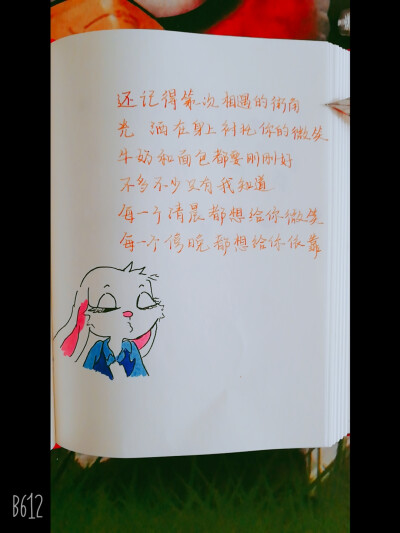 还记得第次相遇的街角
光 洒在身上衬托你的微笑
牛奶和面包都要刚刚好
不多不少又有我知道
每一个清晨都想给你微笑
每一个傍晚都想给你依靠
B612